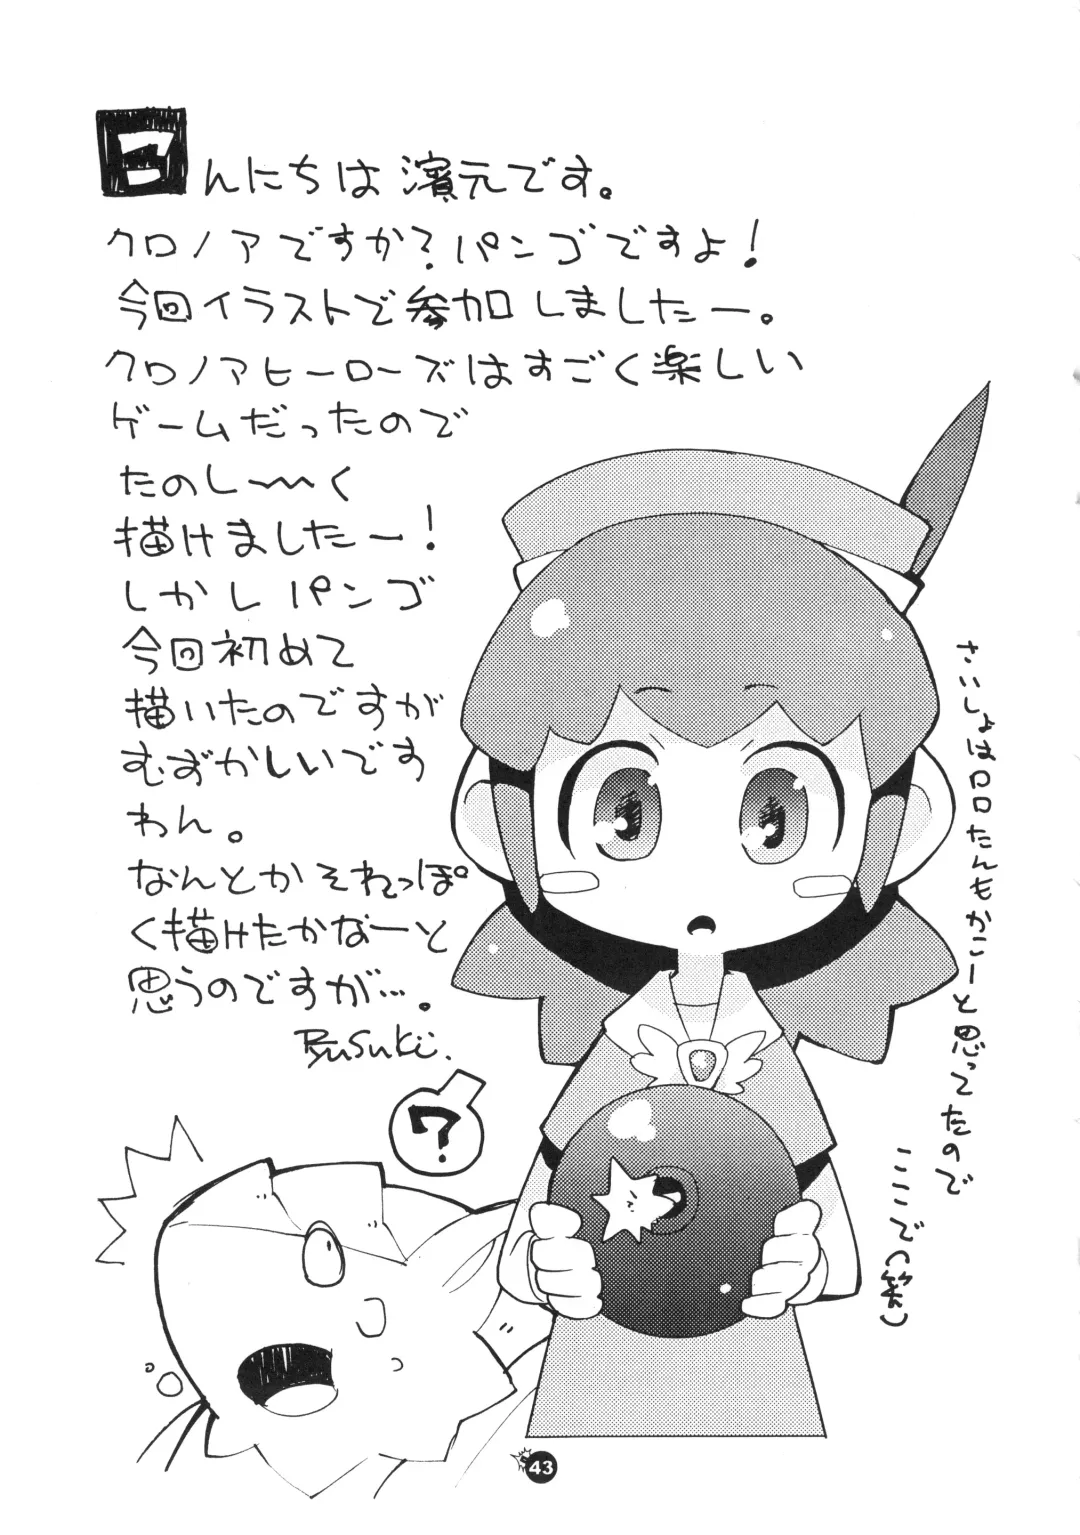 こんにちは 濱元です。
クロノアですか？パンゴですよ！
今回イラストで参加しましたー。
クロノアヒーローズはすごく楽しい
ゲームだったので
たのし〜〜く
描けましたー！
しかし パンゴ
今回初めて
描いたのですが
むずかしいです
わん。
なんとかそれっぽ
く描けたかなーと
思うのですが…。
Ryusuki.
さいしょはロロたんもかこーと思ってたので
ここで(笑)
？
43